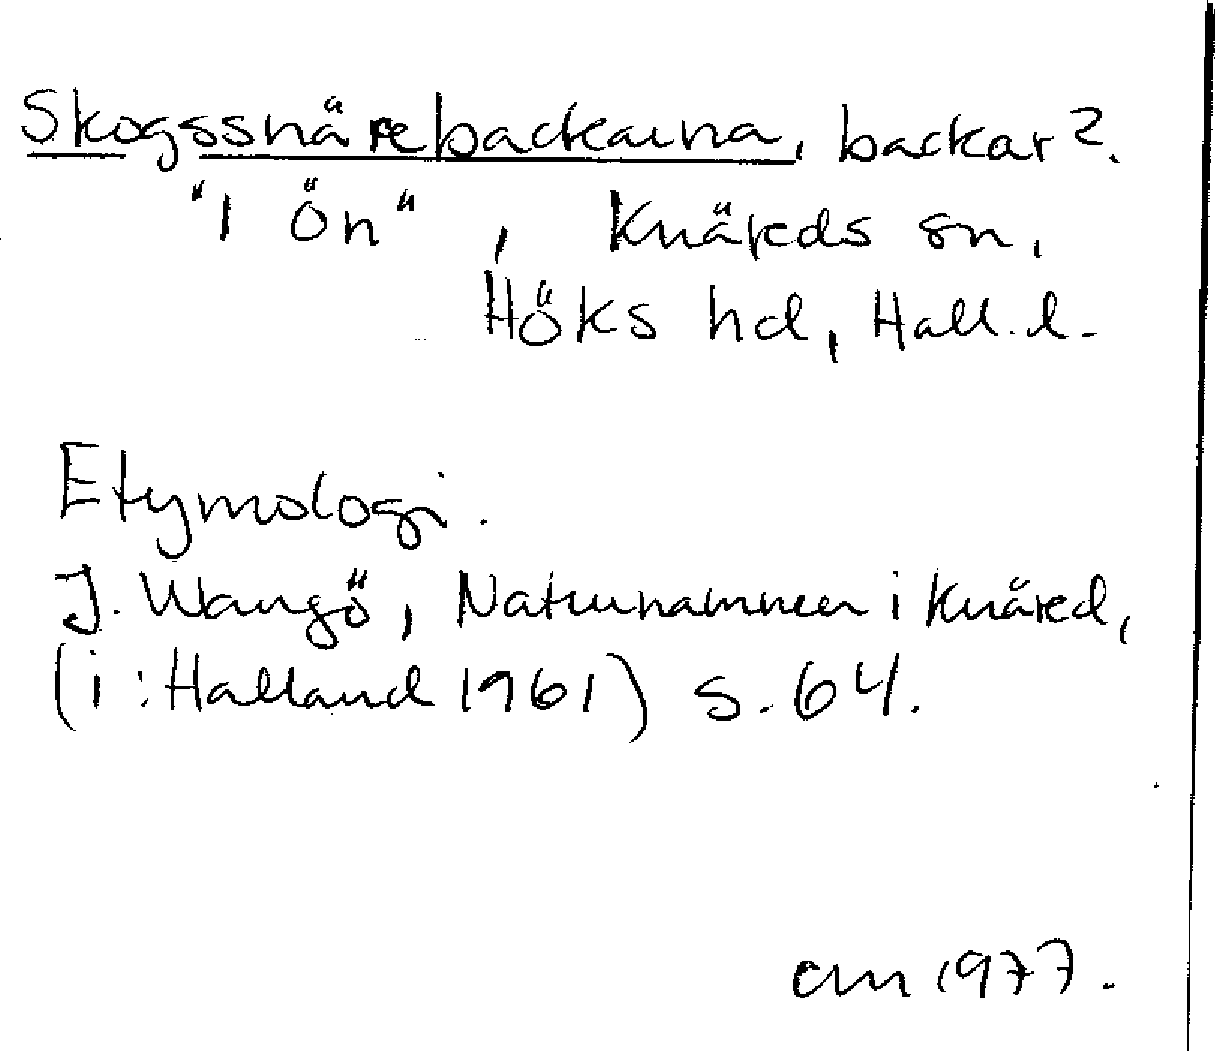 Skogssnärebackarna, backar?.
"I ön", Knäreds sn,
Höks hd, Hall. l.
Etymologi.
J. Wangö, Naturnamnen i Knäred,
(i: Halland 1961) s. 64.
cm 1977.